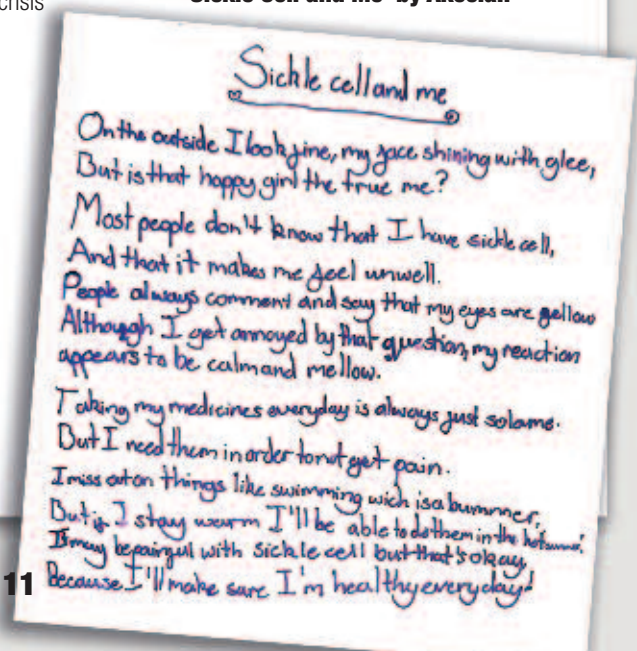 crisis
Sickle cell and me
On the outside I look fine, my face shining with glee,
But is that happy girl the true me?
Most people don't know that I have sickle cell,
And that it makes me feel unwell.
People always comment and say that my eyes are yellow
Although I get annoyed by that question, my reaction
appears to be calm and mellow.
Taking my medicines everyday is always just so lame.
But I need them in order to not get pain.
I miss out on things like swimming wich is a bummer,
But if I stay warm I'll be able to do them in the hot summer.
It may be painful with sickle cell but that's okay,
Because I'll make sure I'm healthy everyday!
11